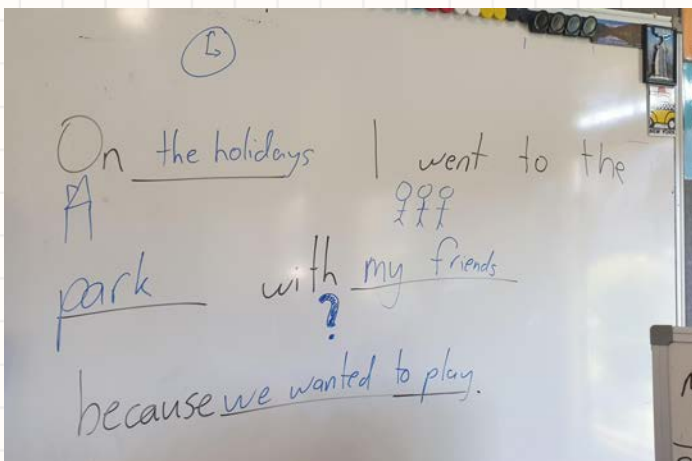 On the holidays I went to the
park with my friends
?
because we wanted to play.
NEW YORK